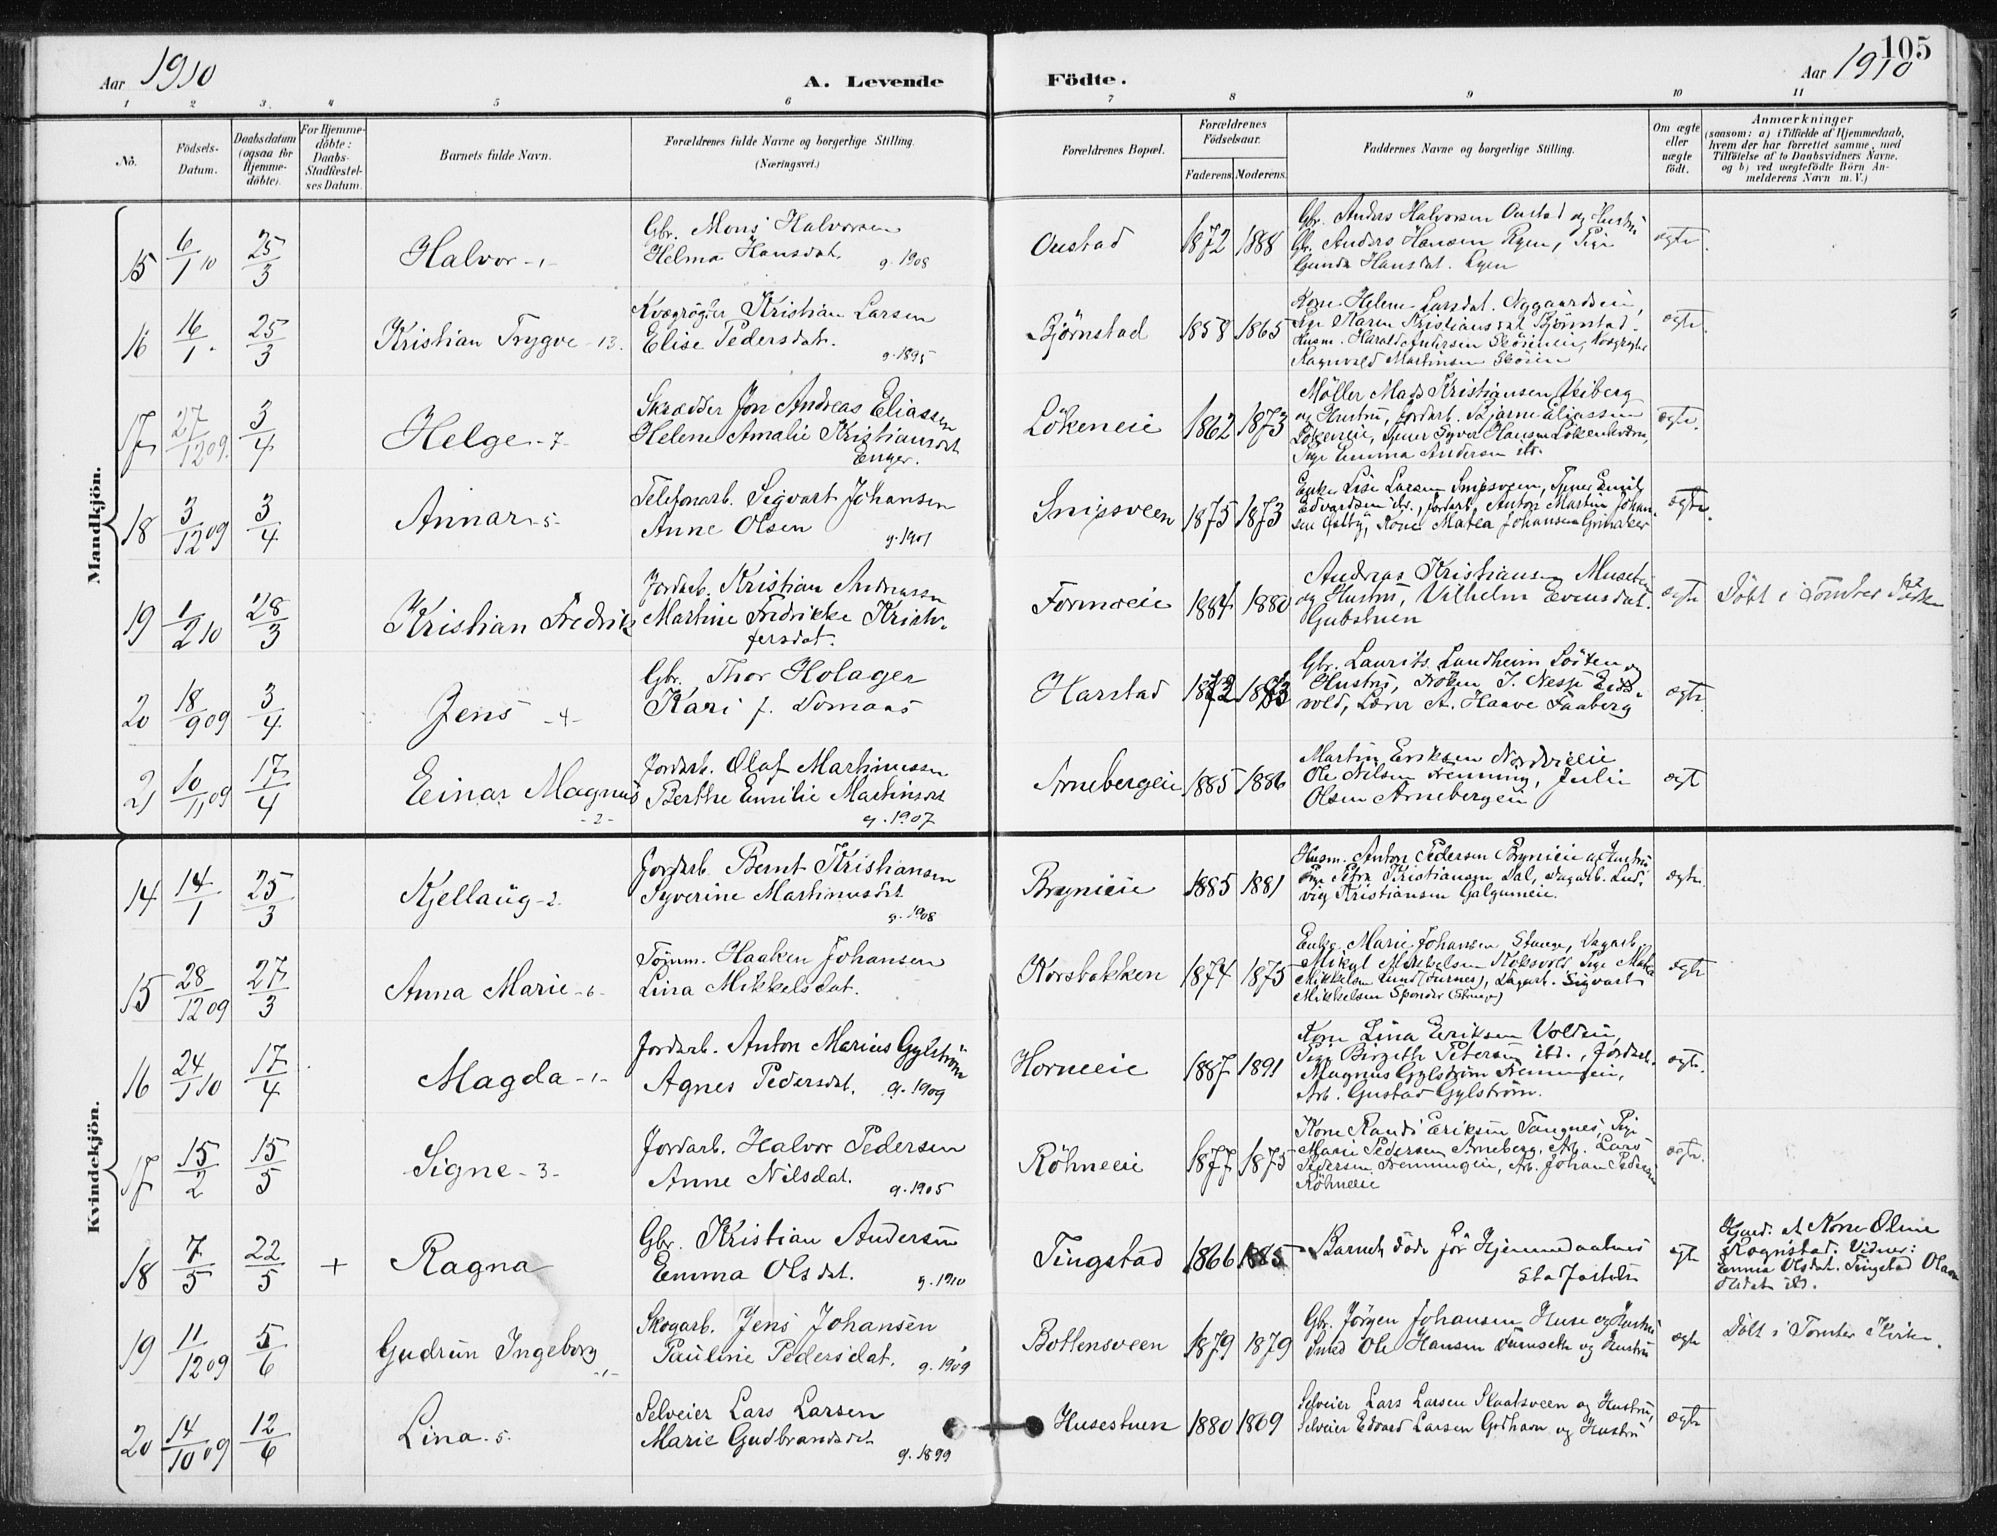 Aar 1910
A. Levende Födte.
Aar 1910
105
1 2 3. 4 5 6 7 8 9 10 11
No.
Födsels-
Datum.
Daabsdatum
(ogsaa for
Hjemme-
döbte).
For Hjemme-
döbte:
Daabs-
Stadfæstel-
ses Datum.
Barnets fulde Navn.
Forældrenes fulde Navne og borgerlige Stilling.
(Næringsvei.)
Forældrenes Bopæl.
Forældrenes
Födselsaar.
Faderens. Moderens.
Faddernes Navne og borgerlige Stilling.
Om ægte
eller
uægte
födt.
Anmærkninger
(saasom: a) i Tilfælde af Hjemmedaab,
hvem der har forrettet samme, med
Tilföielse af to Daabsvidners Navne,
og b) ved uægtefödte Börn An-
melderens Navn m. V.)
Mandkjön.
15 6/1 10 25/3 Halvor -1-
Gbr. Mons Halvorsen
Helma Hansdat. g. 1908
Oustad 1872 1888
Gbr. Anders Halvorsen Oustad og Hustru
Gbr. Anders Hansen Ryen, Pige
Gunda Hansdat. Ryen
ægte.
16 16/1. 25/3 Kristian Trygve -13.
Kvægrøgter Kristian Larsen
Elise Pedersdat. g. 1895
Bjørnstad 1858 1865
Kone Helene Larsdat. Nygaardseie,
Pige Karen Kristiansdat Bjørnstad.
Husm. Harald Andersen
Ragnvald Martinsen Skøien
ægte.
17 27/12 09. 3/4 Helge -7-
Skrædder Jon Andreas Eliassen
Helene Amalie Kristiansdt
Enger.
Lökeneie 1862 1873
Möller Mads Kristiansen Veiberg
og Hustru, Jordarb. Bjarne Eliassen
Lökeneie, Tjener Syver Hansen Lökenkværn,
Pige Emma Andersen ibd.
ægte.
18 3/12 09 3/4 Annar -5-
Telefonarb. Sigvart Johansen
Anne Olsen g. 1901
Snipsveen 1875 1873
Enke Lise Larsen Snipsveen, Tjener Emil
Edvardsen ib., Jordarb. Anton Martin Johan-
sen, Kone Matea Johansen
ægte.
19 1/2 10 28/3 Kristian Fredrik
Jordarb. Kristian Andreassen
Martine Fredrikke Kristo-
fersdat.
Formoeie 1884 1880
Andreas Kristiansen
og Hustru, Vilhelm Evensdat.
Gubstuen
ægte
Döbt i Tomter Kirke
20 18/9 09 3/4 Jens -4-
Gbr. Thor Holager
Kari f. Domaas
Harstad 1872 1883
Gbr. Laurits Sundheim Löiten og
Hustru, Fröken I. Nesje Eids-
vold, Lærer A. Haave Faaberg
ægte
21 10/11 09 17/4 Einar Magnus
-2-
Jordarb. Olaf Martinussen
Berthe Emilie Martinsdt
g. 1907
Arnebergeie 1885 1886
Martin Eriksen Nordvieie
Ole Nilsen Fremming, Julie
Olsen Arnebergeie
ægt
Kvindekjön.
14 14/1 25/3 Kjellaug -2.
Jordarb. Bernt Kristiansen
Syverine Martinusdt
g. 1908
Brynieie 1885 1881
Husm. Anton Pedersen Brynieie og Hustru
Pige Petra Kristiansen Dal, Dagarb. Lud-
vig Kristiansen Galgumeie.
ægte.
15 28/12 09 27/3 Anna Marie -6-
Tömm. Haaken Johansen
Lina Mikkelsdat.
Korsbakken 1874 1875
Enke Marie Johansen, Stange, Dagarb.
Mikal Mikkelsen Koksvold, Pige
Mikkelsen Lund (Furnes), Dagarb. Sigvart
Mikkelsen Sponder (Stange)
ægte
16 24/1 10 17/4 Magda -1-
Jordarb. Anton Marius Gylström
Agnes Pedersdat. g. 1909
Horneeie 1887 1891
Kone Lina Eriksen Voldeie,
Pige Birgith Petersen ibd., Jordarb.
Magnus Gylström Fremmingeie,
Arb. Gustad Gylström.
ægte.
17 15/2 15/5 Signe -3-
Jordarb. Halvor Pedersen
Anne Nilsdat. g. 1905
Röhneeie 1877 1875
Kone Randi Eriksen Tangnes, Pige
Marie Pedersen Arneberg, Arb. Lars
Pedersen Fremmingeie, Arb. Johan Pedersen
Röhneeie
ægte.
18 7/5 22/5 + Ragna
Gbr. Kristian Andersen
Emma Olsdat. g. 1910
Tingstad 1866 1885
Barnet döde för Hjemmedaabens
Stadfæstelse
ægte
Hjmd. af Kone Oline
Rognstad. Vidner:
Emma Olsdat. Tingstad Olava
Olsdat ib.
19 11/12 09 5/6 Gudrun Ingeborg
-1-
Skogarb. Jens Johansen
Pauline Pedersdat. g. 1909
Bottensveen 1879 1879
Gbr. Jörgen Johansen Huse og Hustru
Smed Ole Hansen og Hustru
ægte
Döbt i Tomter Kirke
20 14/10 09 12/6 Lina -5.
Selveier Lars Larsen
Marie Gudbrandsdt
g. 1899
Husestuen 1880 1869
Selveier Lars Larsen Slaatsveen og Hustru,
Selveier Edvard Larsen Godhavn og Hustru
ægte